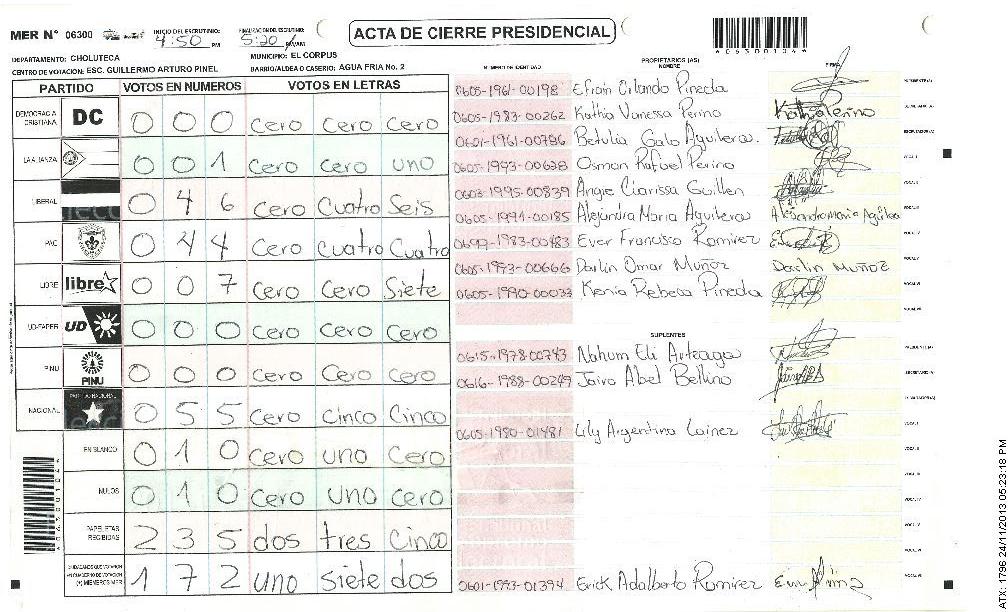 MER N° 06300 INICIO DEL ESCRUTINIO: 4:50 PM FINALIZACION ESCRUTINIO: 5:20 PM/AM
ACTA DE CIERRE PRESIDENCIAL
DEPARTAMENTO: CHOLUTECA MUNICIPIO: EL CORPUS
CENTRO DE VOTACION: ESC. GUILLERMO ARTURO PINEL BARRIO/ALDEA O CASERIO: AGUA FRIA No. 2
PARTIDO VOTOS EN NUMEROS VOTOS EN LETRAS
DEMOCRACIA CRISTIANA DC 0 0 0 cero cero cero
LA ALIANZA 0 0 1 cero cero uno
LIBERAL 0 4 6 cero cuatro seis
PAC 0 4 4 cero cuatro cuatro
LIBRE libre 0 0 7 cero cero siete
UD-FAPER UD 0 0 0 cero cero cero
PINU PINU 0 0 0 cero cero cero
NACIONAL PARTIDO NACIONAL 0 5 5 cero cinco cinco
EN BLANCO 0 1 0 cero uno cero
NULOS 0 1 0 cero uno cero
PAPELETAS RECIBIDAS 2 3 5 dos tres cinco
CIUDADANOS QUE VOTARON 1 7 2 uno siete dos
NUMERO DE IDENTIDAD PROPIETARIOS (AS) NOMBRE FIRMA
0605-1961-00198 Efrain Orlando Pineda
0605-1983-00262 Kathia Vanessa Perino Kathia Perino
0601-1961-00786 Betulia Galo Aguilera.
0605-1993-00628 Osman Rafael Perino
0603-1995-00839 Angie Clarissa Guillen
0605-1991-00185 Alejandra Maria Aguilera Alejandra Maria Aguilera
0699-1983-00483 Ever Francisco Ramirez
0605-1973-00666 Darlin Omar Muñoz Darlin Muñoz
0605-1990-00033 Kenia Rebeca Pineda
SUPLENTES
0615-1978-00743 Nahum Eli Arteaga
0616-1988-00249 Jairo Abel Bellino
0605-1980-01481 Lily Argentina Lainez
0601-1993-01394 Erick Adalberto Ramirez
ATX: 1796 24/11/2013 05:23:18 PM